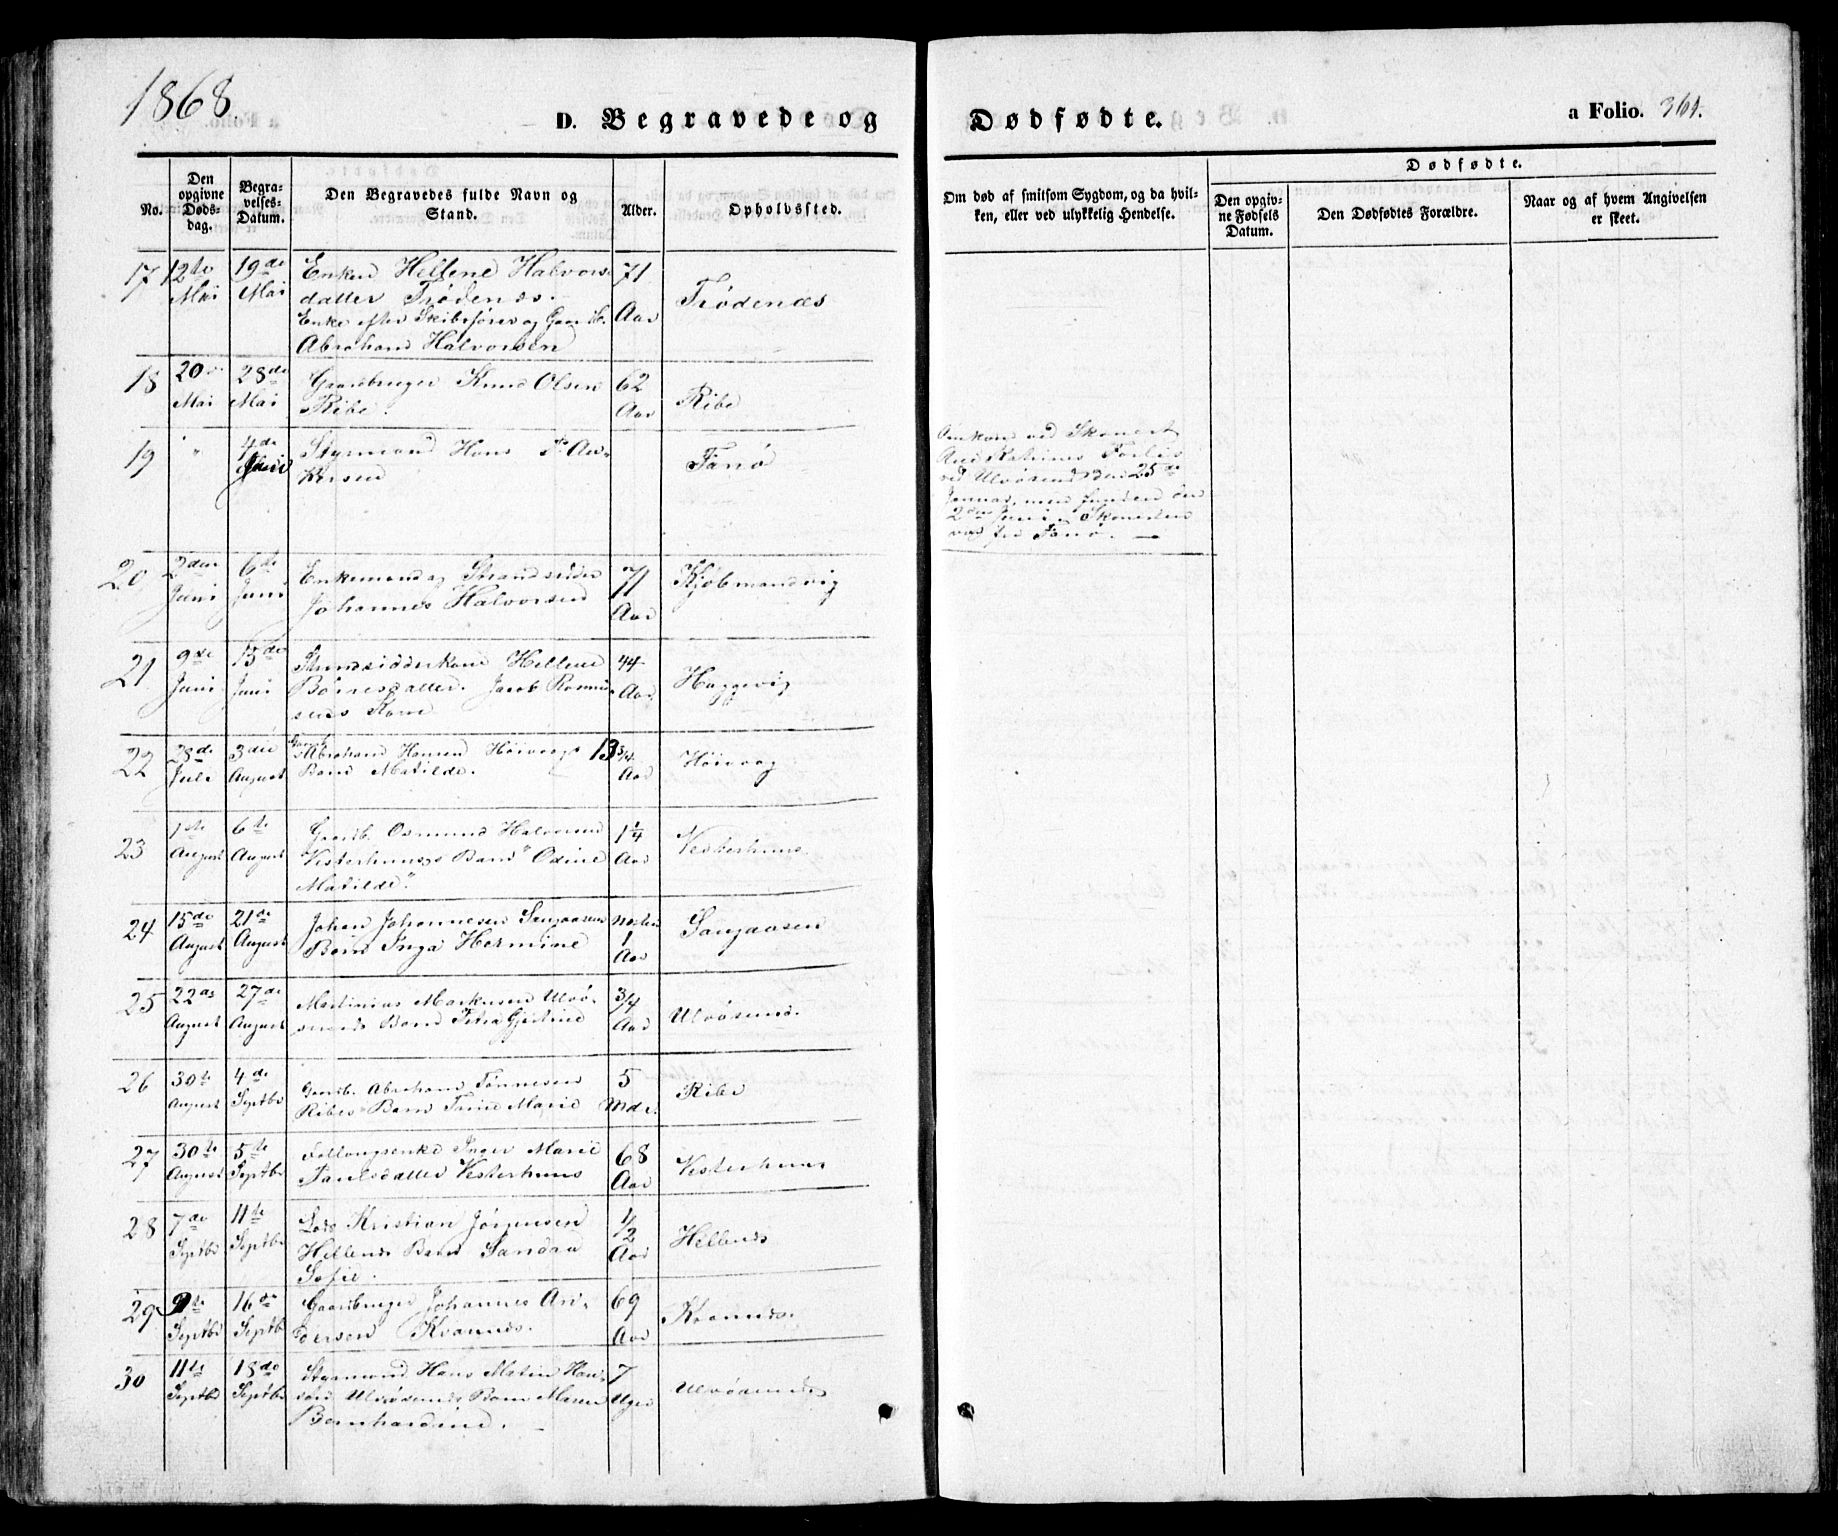 1868.
D. Begravede og Dødfødte.
a Folio. 364.
No.
Den opgivne Døds-dag.
Begra-velses-Datum.
Den Begravedes fulde Navn og Stand.
Alder.
Opholdssted.
Om død af smitsom Sygdom, og da hvil-
ken, eller ved ulykkelig Hendelse.
Dødfødte.
Den opgiv-ne Fødsels Datum.
Den Dødfødtes Forældre.
Naar og af hvem Angivelsen er skeet.
17 12te Mai 19de Mai Enken Hellene Halvors-
datter Trødenæs.
Enke efter Skibsfører og Gaardb.
Abraham Halvorsen
71 Aar Trødenæs
18 20 Mai 28de Mai Gaardbruger Knud Olsen
Ribe.
62 Aar Ribe
19 " 4de Juni Styrmand Hans
Fanø
Omkom ved Skonert
Ane Katrines Forlis
ved Ulvøsund den 25de
Januar, men funden den
2den Juni. Skonerten
var fra Fanø. —
20 2den Juni 6te Juni Enkemand og Strandsidder
Johannes Halvorsen
71 Aar Kjøbmandsvig
21 9de Juni 13de Juni Strandsidderkone Hellene
Børresdatter. Jacob Rasmus-
sens Kone
44 Aar Haggevig
22 28de Juli 3die August Abraham Hansen Høivaags
Barn Matilde.
13 3/4 Aar Høivaag
23 1ste August 6te August Gaardb. Osmund Halvorsen
Vesterhuus's Barn "Odine
Matilde."
1 1/4 Aar Vesterhuus
24 15de August 21de August Johan Johannesen Sangaasens
Barn Inga Hermine
Næsten 1 Aar Sangaasen
25 22de August 27de August Martinius Markusen Ulvø-
sunds Barn Petra Gjertine
3/4 Aar Ulvøsund.
26 30te August 4de Septbr Gaardb. Abraham Tønnesen
Ribes Barn Trine Marie
5 Mdr. Ribe
27 30te August 5te Septbr Føllougsenke Inger Marie
Paulsdatter Vesterhuus
68 Aar Vesterhuus
28 7de Septbr 11te Septbr Lods Kristian Jørgensen
Hellenes Barn Sandra
Sofie.
1/2 Aar Hellenes
29 9de Septbr 16de Septbr Gaardbruger Johannes An-
dersen Kvannes.
69 Aar Kvannes.
30 11te Septbr 18de Septbr Styrmand Hans Matin Han-
sens Ulvøsunds Barn Maren
Bernhardine.
7 Uger Ulvøsund